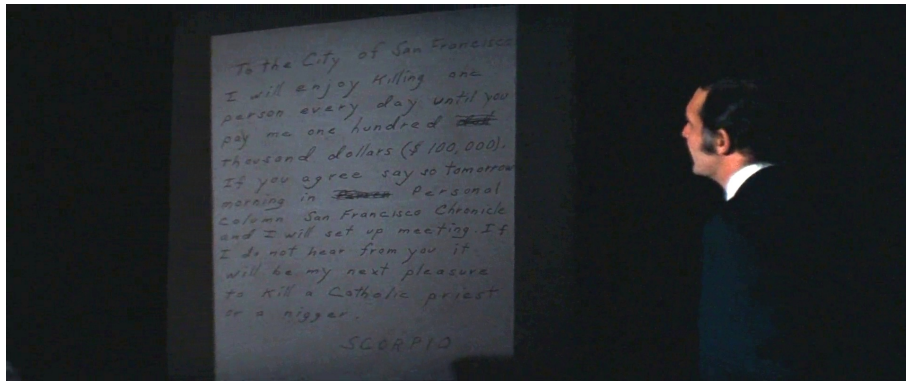 To the City of San Francisco
I will enjoy killing one
person every day until you
pay me one hundred
thousand dollars ($100,000).
If you agree say so tomorrow
morning in Personal
Column San Francisco Chronicle
and I will set up meeting. If
I do not hear from you it
will be my next pleasure
to kill a Catholic priest
or a nigger.
SCORPIO